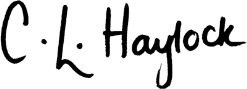 C. L. Haylock